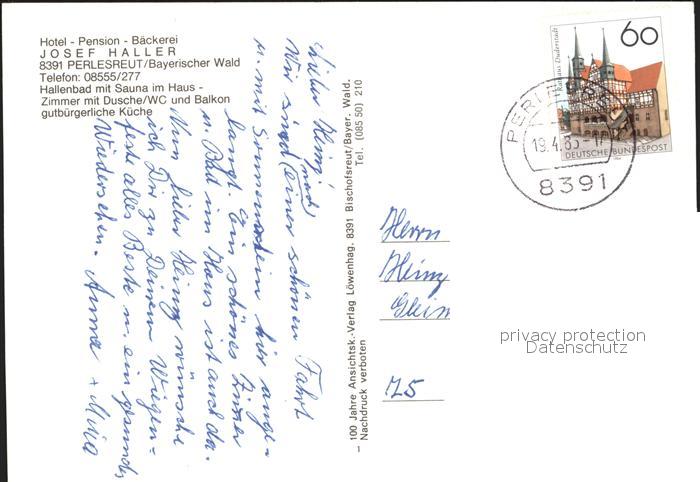 Hotel - Pension - Bäckerei
JOSEF HALLER
8391 PERLESREUT/Bayerischer Wald
Telefon: 08555/277
Hallenbad mit Sauna im Haus -
Zimmer mit Dusche/WC und Balkon
gutbürgerliche Küche
Lieber Heinz!
Wir sind (nach) einer schönen Fahrt
u. mit Sonnenschein hier ange-
langt. Ein schönes Zimmer
u. Bad im Haus ist auch da.
Nun lieber Heinz wünsche
ich Dir zu Deinem Wiegen-
feste alles Beste u. ein gesundes
Wiedersehen. Anna +
– 100 Jahre Ansichtsk.-Verlag Löwenhag, 8391 Bischofsreut/Bayer. Wald.
Nachdruck verboten Tel. (085 50) 210
60
Rathaus Duderstadt
DEUTSCHE BUNDESPOST
19.4.85
8391
Herrn
Heinz
75
privacy protection
Datenschutz